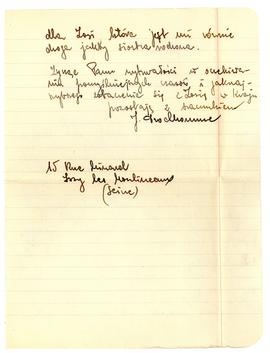 dla Zosi która jest mi równie
droga jakby siostra rodzona.
Życzę Panu wytrwałości w oczekiwa-
niu pomyślniejszych czasów i jaknaj-
szybszego zobaczenia się z Zosią w Kraju
pozostaję z szacunkiem
J.
15 Rue Minard
Issy les Moulineaux
(Seine)